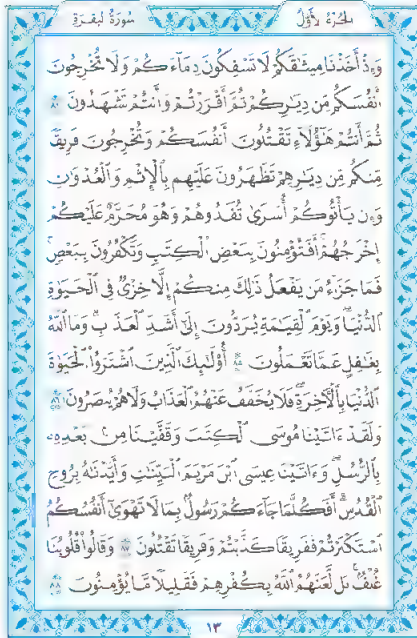 الجزء الأول
سورة البقرة
وَإِذْ أَخَذْنَا مِيثَٰقَكُمْ لَا تَسْفِكُونَ دِمَآءَكُمْ وَلَا تُخْرِجُونَ
أَنفُسَكُم مِّن دِيَٰرِكُمْ ثُمَّ أَقْرَرْتُمْ وَأَنتُمْ تَشْهَدُونَ
ثُمَّ أَنتُمْ هَٰٓؤُلَآءِ تَقْتُلُونَ أَنفُسَكُمْ وَتُخْرِجُونَ فَرِيقًا
مِّنكُم مِّن دِيَٰرِهِمْ تَظَٰهَرُونَ عَلَيْهِم بِٱلْإِثْمِ وَٱلْعُدْوَٰنِ
وَإِن يَأْتُوكُمْ أُسَٰرَىٰ تُفَٰدُوهُمْ وَهُوَ مُحَرَّمٌ عَلَيْكُمْ
إِخْرَاجُهُمْ أَفَتُؤْمِنُونَ بِبَعْضِ ٱلْكِتَٰبِ وَتَكْفُرُونَ بِبَعْضٍ
فَمَا جَزَآءُ مَن يَفْعَلُ ذَٰلِكَ مِنكُمْ إِلَّا خِزْىٌ فِى ٱلْحَيَوٰةِ
ٱلدُّنْيَا وَيَوْمَ ٱلْقِيَٰمَةِ يُرَدُّونَ إِلَىٰٓ أَشَدِّ ٱلْعَذَابِ وَمَا ٱللَّهُ
بِغَٰفِلٍ عَمَّا تَعْمَلُونَ ٨٥ أُو۟لَٰٓئِكَ ٱلَّذِينَ ٱشْتَرَوُا۟ ٱلْحَيَوٰةَ
ٱلدُّنْيَا بِٱلْأَخِرَةِ فَلَا يُخَفَّفُ عَنْهُمُ ٱلْعَذَابُ وَلَا هُمْ يُنصَرُونَ ٨٦
وَلَقَدْ ءَاتَيْنَا مُوسَى ٱلْكِتَٰبَ وَقَفَّيْنَا مِنۢ بَعْدِهِۦ
بِٱلرُّسُلِ وَءَاتَيْنَا عِيسَى ٱبْنَ مَرْيَمَ ٱلْبَيِّنَٰتِ وَأَيَّدْنَٰهُ بِرُوحِ
ٱلْقُدُسِ أَفَكُلَّمَا جَآءَكُمْ رَسُولٌۢ بِمَا لَا تَهْوَىٰٓ أَنفُسُكُمُ
ٱسْتَكْبَرْتُمْ فَفَرِيقًا كَذَّبْتُمْ وَفَرِيقًا تَقْتُلُونَ ٨٧ وَقَالُوا۟ قُلُوبُنَا
غُلْفٌۢ بَل لَّعَنَهُمُ ٱللَّهُ بِكُفْرِهِمْ فَقَلِيلًا مَّا يُؤْمِنُونَ ٨٨
١٣